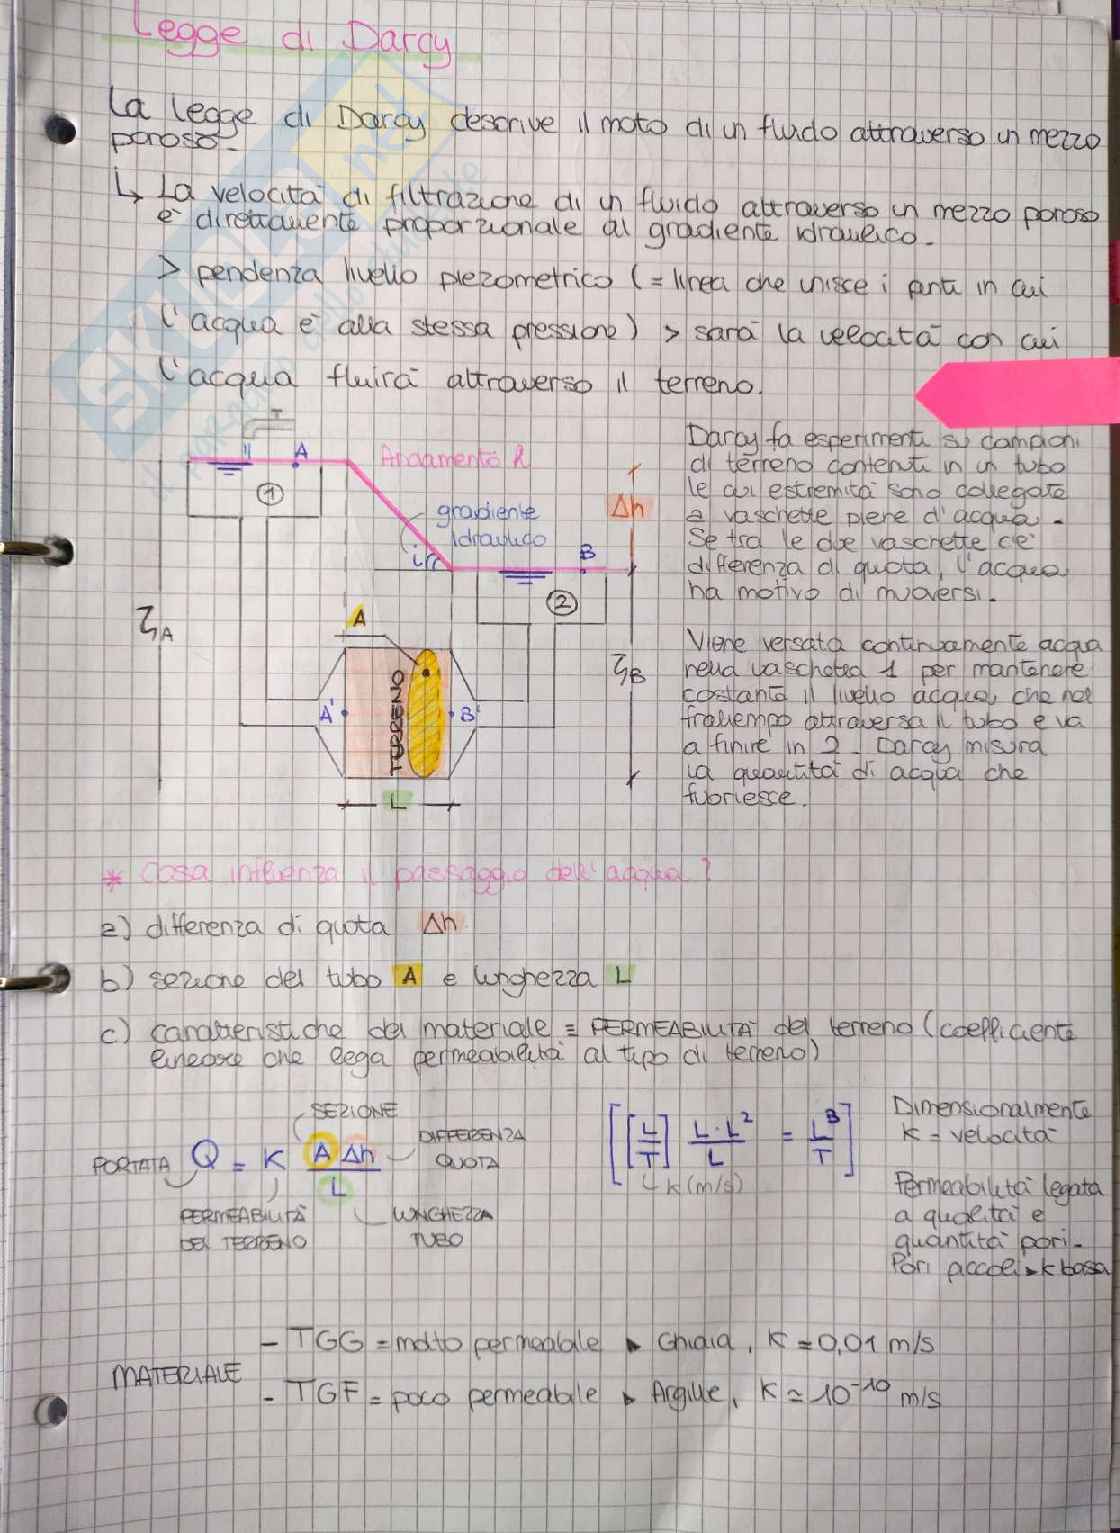 Legge di Darcy
La legge di Darcy descrive il moto di un fluido attraverso un mezzo
poroso.
↳ La velocità di filtrazione di un fluido attraverso un mezzo poroso
è direttamente proporzionale al gradiente idraulico.
> pendenza livello piezometrico (= linea che unisce i punti in cui
l'acqua è alla stessa pressione) > sarà la velocità con cui
l'acqua fluirà attraverso il terreno.
A
Andamento h
①
gradiente
idraulico
i
Δh
B
②
ζA
A
ζB
A'
TERRENO
B'
L
Darcy fa esperimenti su campioni
di terreno contenuti in un tubo
le cui estremità sono collegate
a vaschette piene d'acqua.
Se tra le due vaschette c'è
differenza di quota, l'acqua
ha motivo di muoversi.
Viene versata continuamente acqua
nella vaschetta 1 per mantenere
costante il livello acqua, che nel
frattempo attraversa il tubo e va
a finire in 2. Darcy misura
la quantità di acqua che
fuoriesce.
* Cosa influenza il passaggio dell'acqua?
a) differenza di quota Δh
b) sezione del tubo A e lunghezza L
c) caratteristiche del materiale = PERMEABILITÀ del terreno (coefficiente
lineare che lega permeabilità al tipo di terreno)
SEZIONE
DIFFERENZA
QUOTA
PORTATA Q = K A Δh / L
PERMEABILITÀ
DEL TERRENO
LUNGHEZZA
TUBO
[[L/T] L·L²/L = L³/T]
↳ K (m/s)
Dimensionalmente
K = velocità
Permeabilità legata
a qualità e
quantità pori.
Pori piccoli ▸ K bassa
MATERIALE
- TGG = molto permeabile ▸ Ghiaia, K ≃ 0,01 m/s
- TGF = poco permeabile ▸ Argille, K ≃ 10⁻¹⁰ m/s